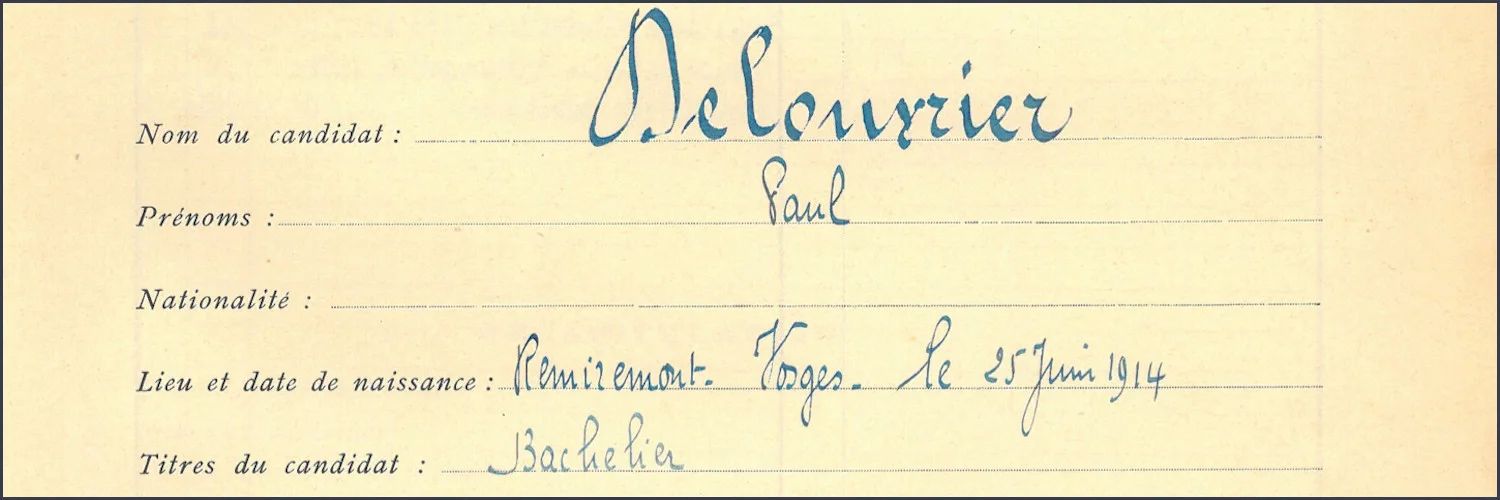 Nom du candidat : Delouvrier
Prénoms : Paul
Nationalité :
Lieu et date de naissance : Remiremont - Vosges - le 25 Juin 1914
Titres du candidat : Bachelier